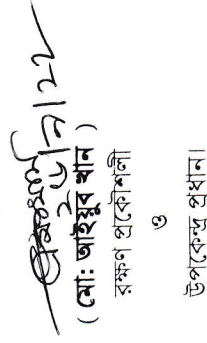 ২৮/৭/২২
( মো: আইয়ুব খান )
রক্ষণ প্রকৌশলী
ও
উপকেন্দ্র প্রধান।